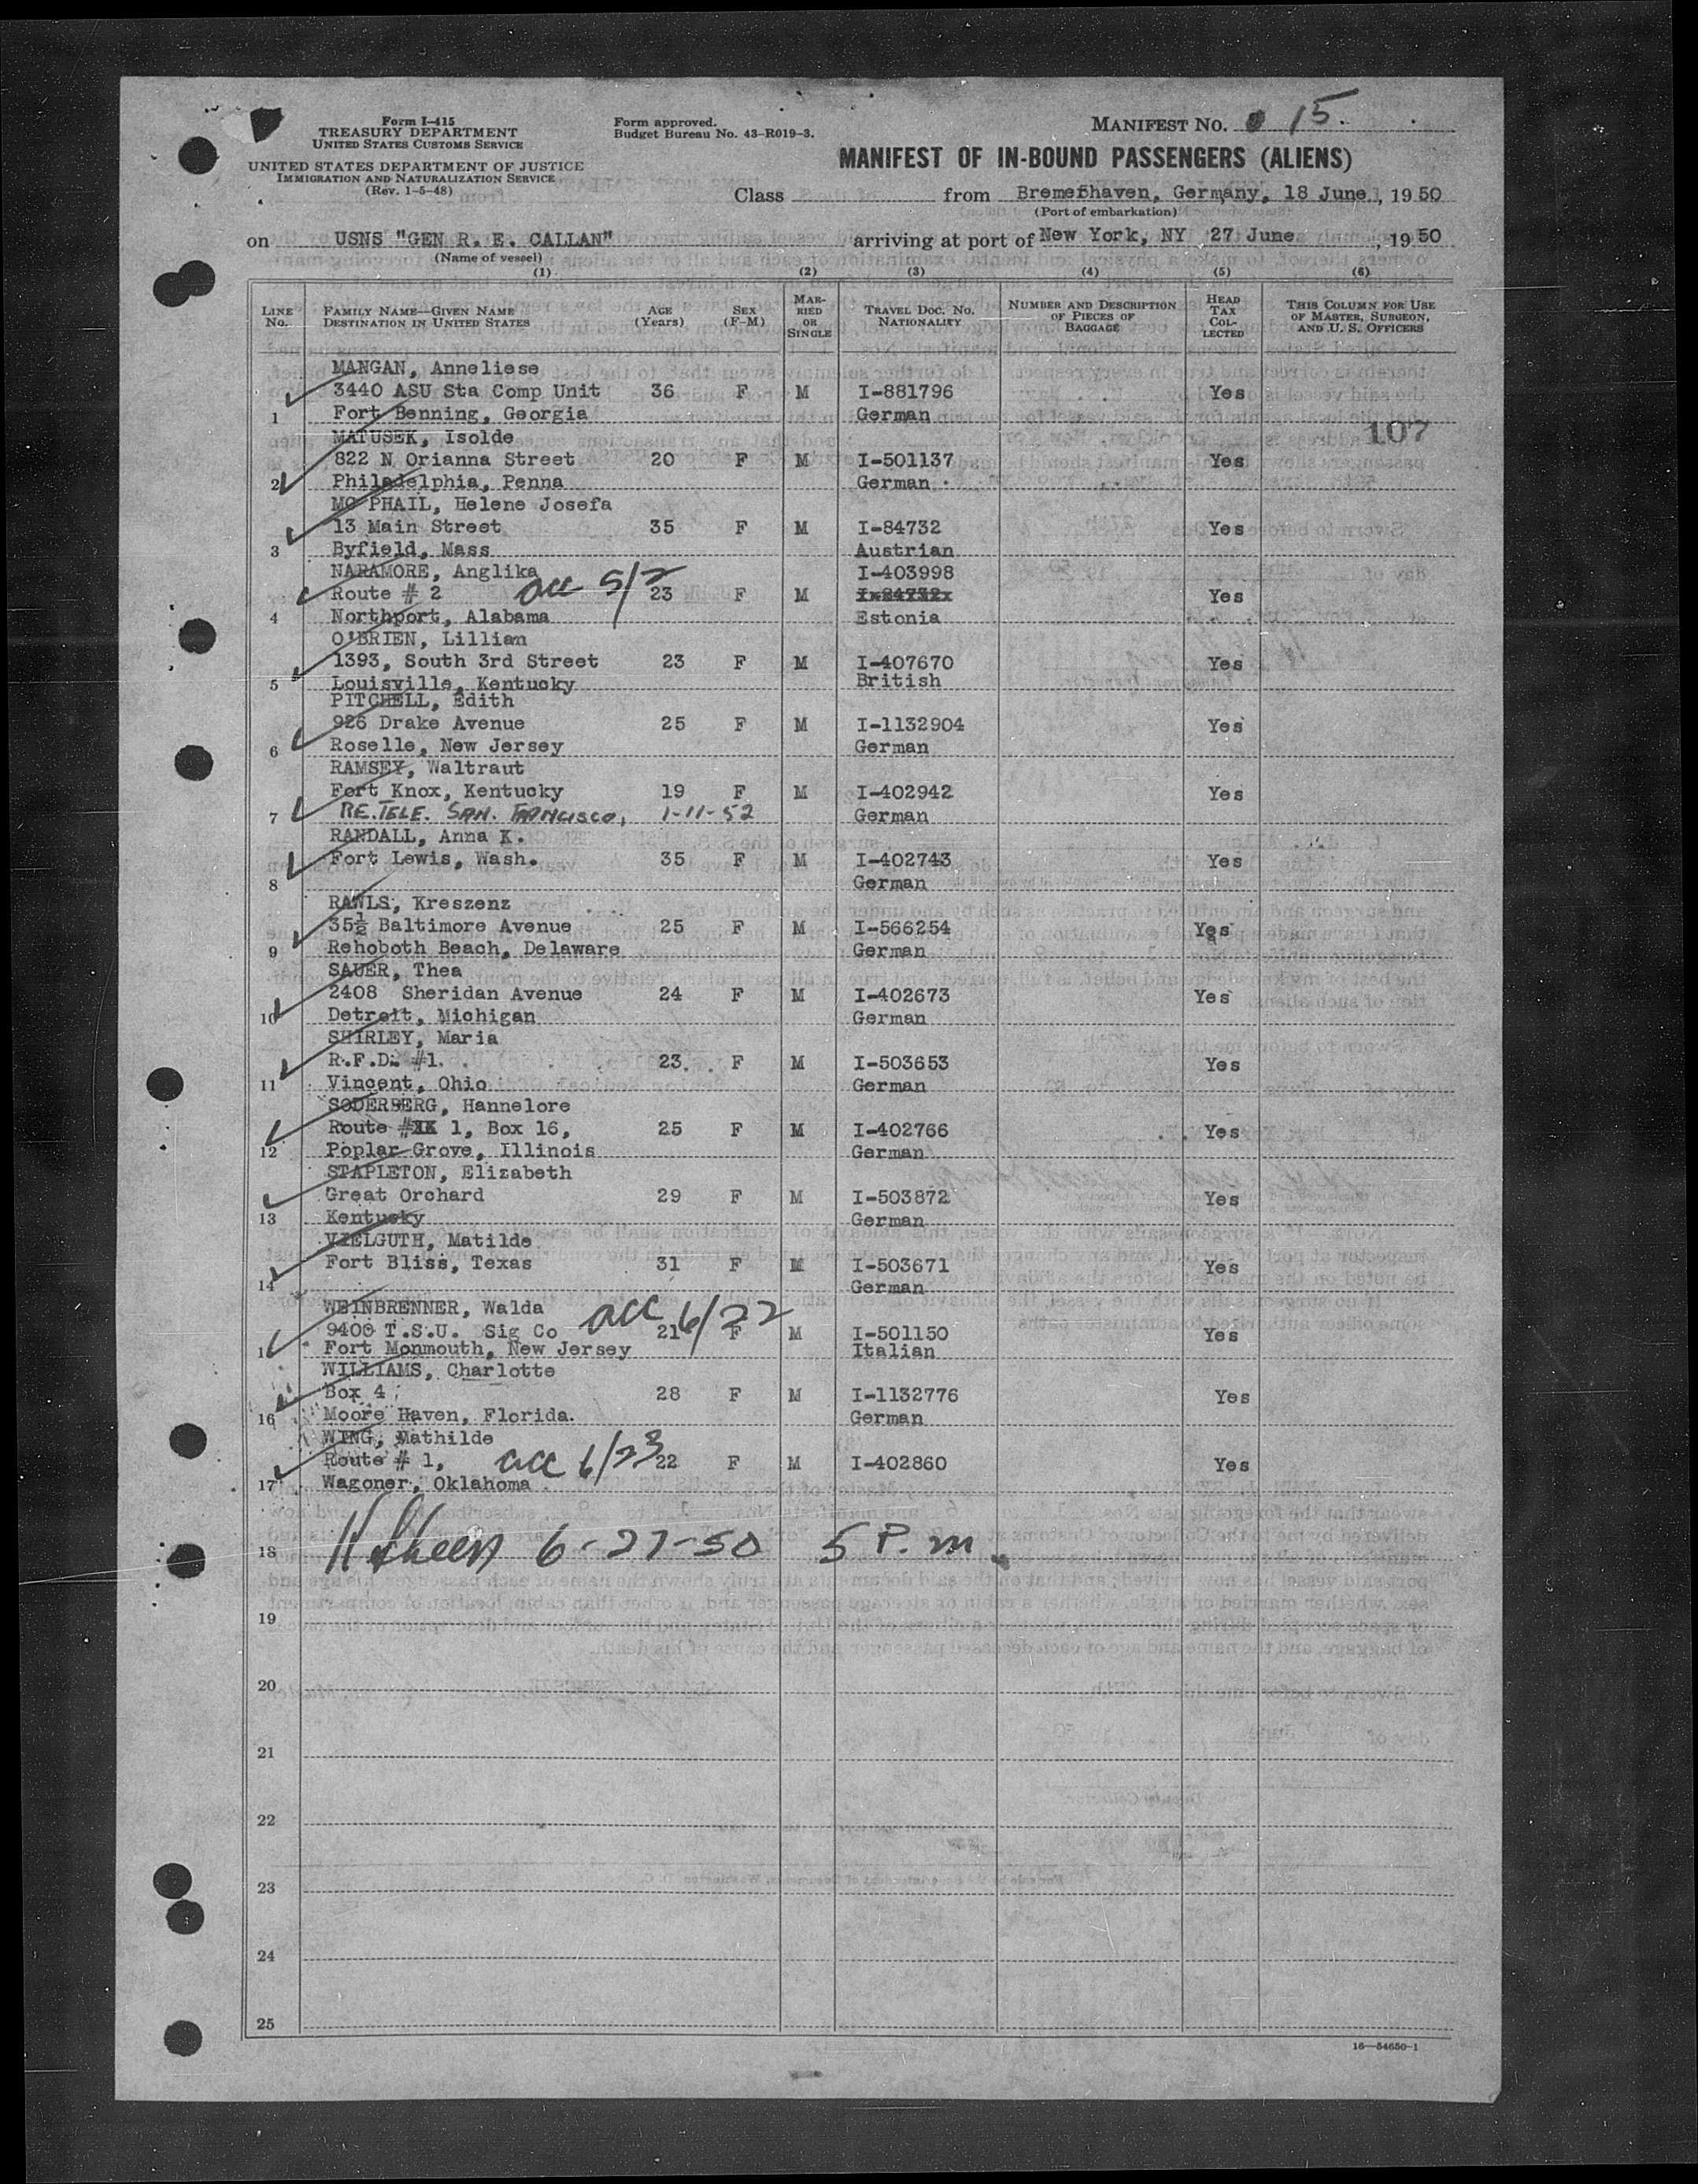 Form I-415
TREASURY DEPARTMENT
UNITED STATES CUSTOMS SERVICE
UNITED STATES DEPARTMENT OF JUSTICE
IMMIGRATION AND NATURALIZATION SERVICE
(Rev. 1-5-48)
Form approved.
Budget Bureau No. 43-R019-3.
MANIFEST NO. 15.
MANIFEST OF IN-BOUND PASSENGERS (ALIENS)
Class from Bremerhaven, Germany, 18 June, 1950
(Port of embarkation)
on USNS "GEN R. E. CALLAN" arriving at port of New York, NY 27 June, 1950
(Name of vessel)
(1) (2) (3) (4) (5) (6)
LINE No. FAMILY NAME—GIVEN NAME DESTINATION IN UNITED STATES AGE (Years) SEX (F-M) MARRIED OR SINGLE TRAVEL DOC. NO. NATIONALITY NUMBER AND DESCRIPTION OF PIECES OF BAGGAGE HEAD TAX COLLECTED THIS COLUMN FOR USE OF MASTER, SURGEON, AND U. S. OFFICERS
MANGAN, Anneliese
3440 ASU Sta Comp Unit 36 F M I-881796 Yes
1 Fort Benning, Georgia German
107
MATUSEK, Isolde
822 N Orianna Street 20 F M I-501137 Yes
2 Philadelphia, Penna German
MC PHAIL, Helene Josefa
13 Main Street 35 F M I-84732 Yes
3 Byfield, Mass Austrian
NARAMORE, Anglika I-403998
Route # 2 acc 5/2 23 F M I-84732x Yes
4 Northport, Alabama Estonia
O'BRIEN, Lillian
1393, South 3rd Street 23 F M I-407670 Yes
5 Louisville, Kentucky British
PITCHELL, Edith
926 Drake Avenue 25 F M I-1132904 Yes
6 Roselle, New Jersey German
RAMSEY, Waltraut
Fort Knox, Kentucky 19 F M I-402942 Yes
7 RE. TELE. SAN. FRANCISCO, 1-11-52 German
RANDALL, Anna K.
Fort Lewis, Wash. 35 F M I-402743 Yes
8 German
RAWLS, Kreszenz
35½ Baltimore Avenue 25 F M I-566254 Yes
9 Rehoboth Beach, Delaware German
SAUER, Thea
2408 Sheridan Avenue 24 F M I-402673 Yes
10 Detroit, Michigan German
SHIRLEY, Maria
R.F.D. #1. 23 F M I-503653 Yes
11 Vincent, Ohio German
SODERBERG, Hannelore
Route #XX 1, Box 16, 25 F M I-402766 Yes
12 Poplar Grove, Illinois German
STAPLETON, Elizabeth
Great Orchard 29 F M I-503872 Yes
13 Kentucky German
VIELGUTH, Matilde
Fort Bliss, Texas 31 F M I-503671 Yes
14 German
WEINBRENNER, Walda acc 6/22
9400 T.S.U. Sig Co 21 F M I-501150 Yes
Fort Monmouth, New Jersey Italian
WILLIAMS, Charlotte
Box 4 28 F M I-1132776 Yes
16 Moore Haven, Florida. German
WING, Mathilde
Route # 1, acc 6/23 22 F M I-402860 Yes
17 Wagoner, Oklahoma
18 6-27-50 5 P.m.
19
20
21
22
23
24
25
16—54650-1